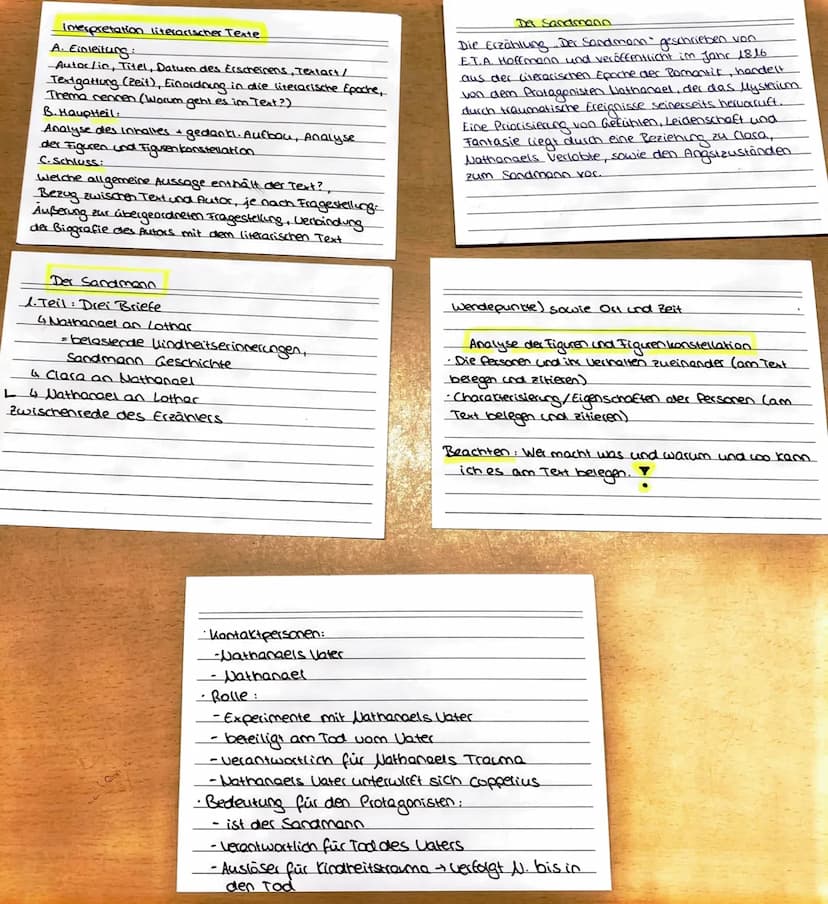 Interpretation literarischer Texte
A. Einleitung:
Autor/in, Titel, Datum des Erscheinens, Textart/
Textgattung (Zeit), Einordnung in die literarische Epoche,
Thema nennen (Worum geht es im Text?)
B. Hauptteil:
Analyse des Inhaltes + gedankl. Aufbau, Analyse
der Figuren und Figurenkonstellation
C. Schluss:
Welche allgemeine Aussage enthält der Text?,
Bezug zwischen Text und Autor, je nach Fragestellung:
Äußerung zur übergeordneten Fragestellung, Verbindung
der Biografie des Autors mit dem literarischen Text
Der Sandmann
Die Erzählung „Der Sandmann" geschrieben von
E.T.A. Hoffmann und veröffentlicht im Jahr 1816
aus der literarischen Epoche der Romantik, handelt
von dem Protagonisten Nathanael, der das Mysterium
durch traumatische Ereignisse seinerseits hervorruft.
Eine Priorisierung von Gefühlen, Leidenschaft und
Fantasie liegt durch eine Beziehung zu Clara,
Nathanaels Verlobte, sowie den Angstzuständen
zum Sandmann vor.
Der Sandmann
1. Teil: Drei Briefe
↳ Nathanael an Lothar
= belastende Kindheitserinnerungen,
Sandmann Geschichte
↳ Clara an Nathanael
↳ Nathanael an Lothar
Zwischenrede des Erzählers
Wendepunkte) sowie Ort und Zeit
Analyse der Figuren und Figurenkonstellation
· Die Personen und ihr Verhalten zueinander (am Text
belegen und zitieren)
· Charakterisierung/Eigenschaften der Personen (am
Text belegen und zitieren)
Beachten: Wer macht was und warum und wo kann
ich es am Text belegen. !
· Kontaktpersonen:
- Nathanaels Vater
- Nathanael
· Rolle:
- Experimente mit Nathanaels Vater
- beteiligt am Tod vom Vater
- verantwortlich für Nathanaels Trauma
- Nathanaels Vater unterwirft sich Coppelius
· Bedeutung für den Protagonisten:
- ist der Sandmann
- verantwortlich für Tod des Vaters
- Auslöser für Kindheitstrauma → verfolgt N. bis in
den Tod